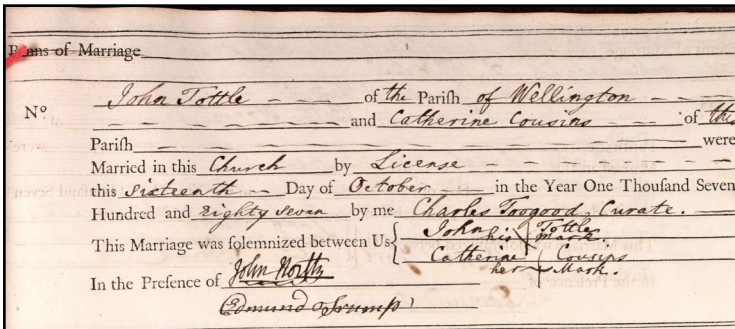 Banns of Marriage
John Tottle of the Parish of Wellington
No. and Catherine Cousins of this
Parish were
Married in this Church by License
this Sixteenth Day of October in the Year One Thousand Seven
Hundred and Eighty Seven by me Charles Toogood, Curate.
This Marriage was solemnized between Us { John Tottle
his mark.
Catherine Cousins
her Mark.
In the Presence of John North
Edmund Trump